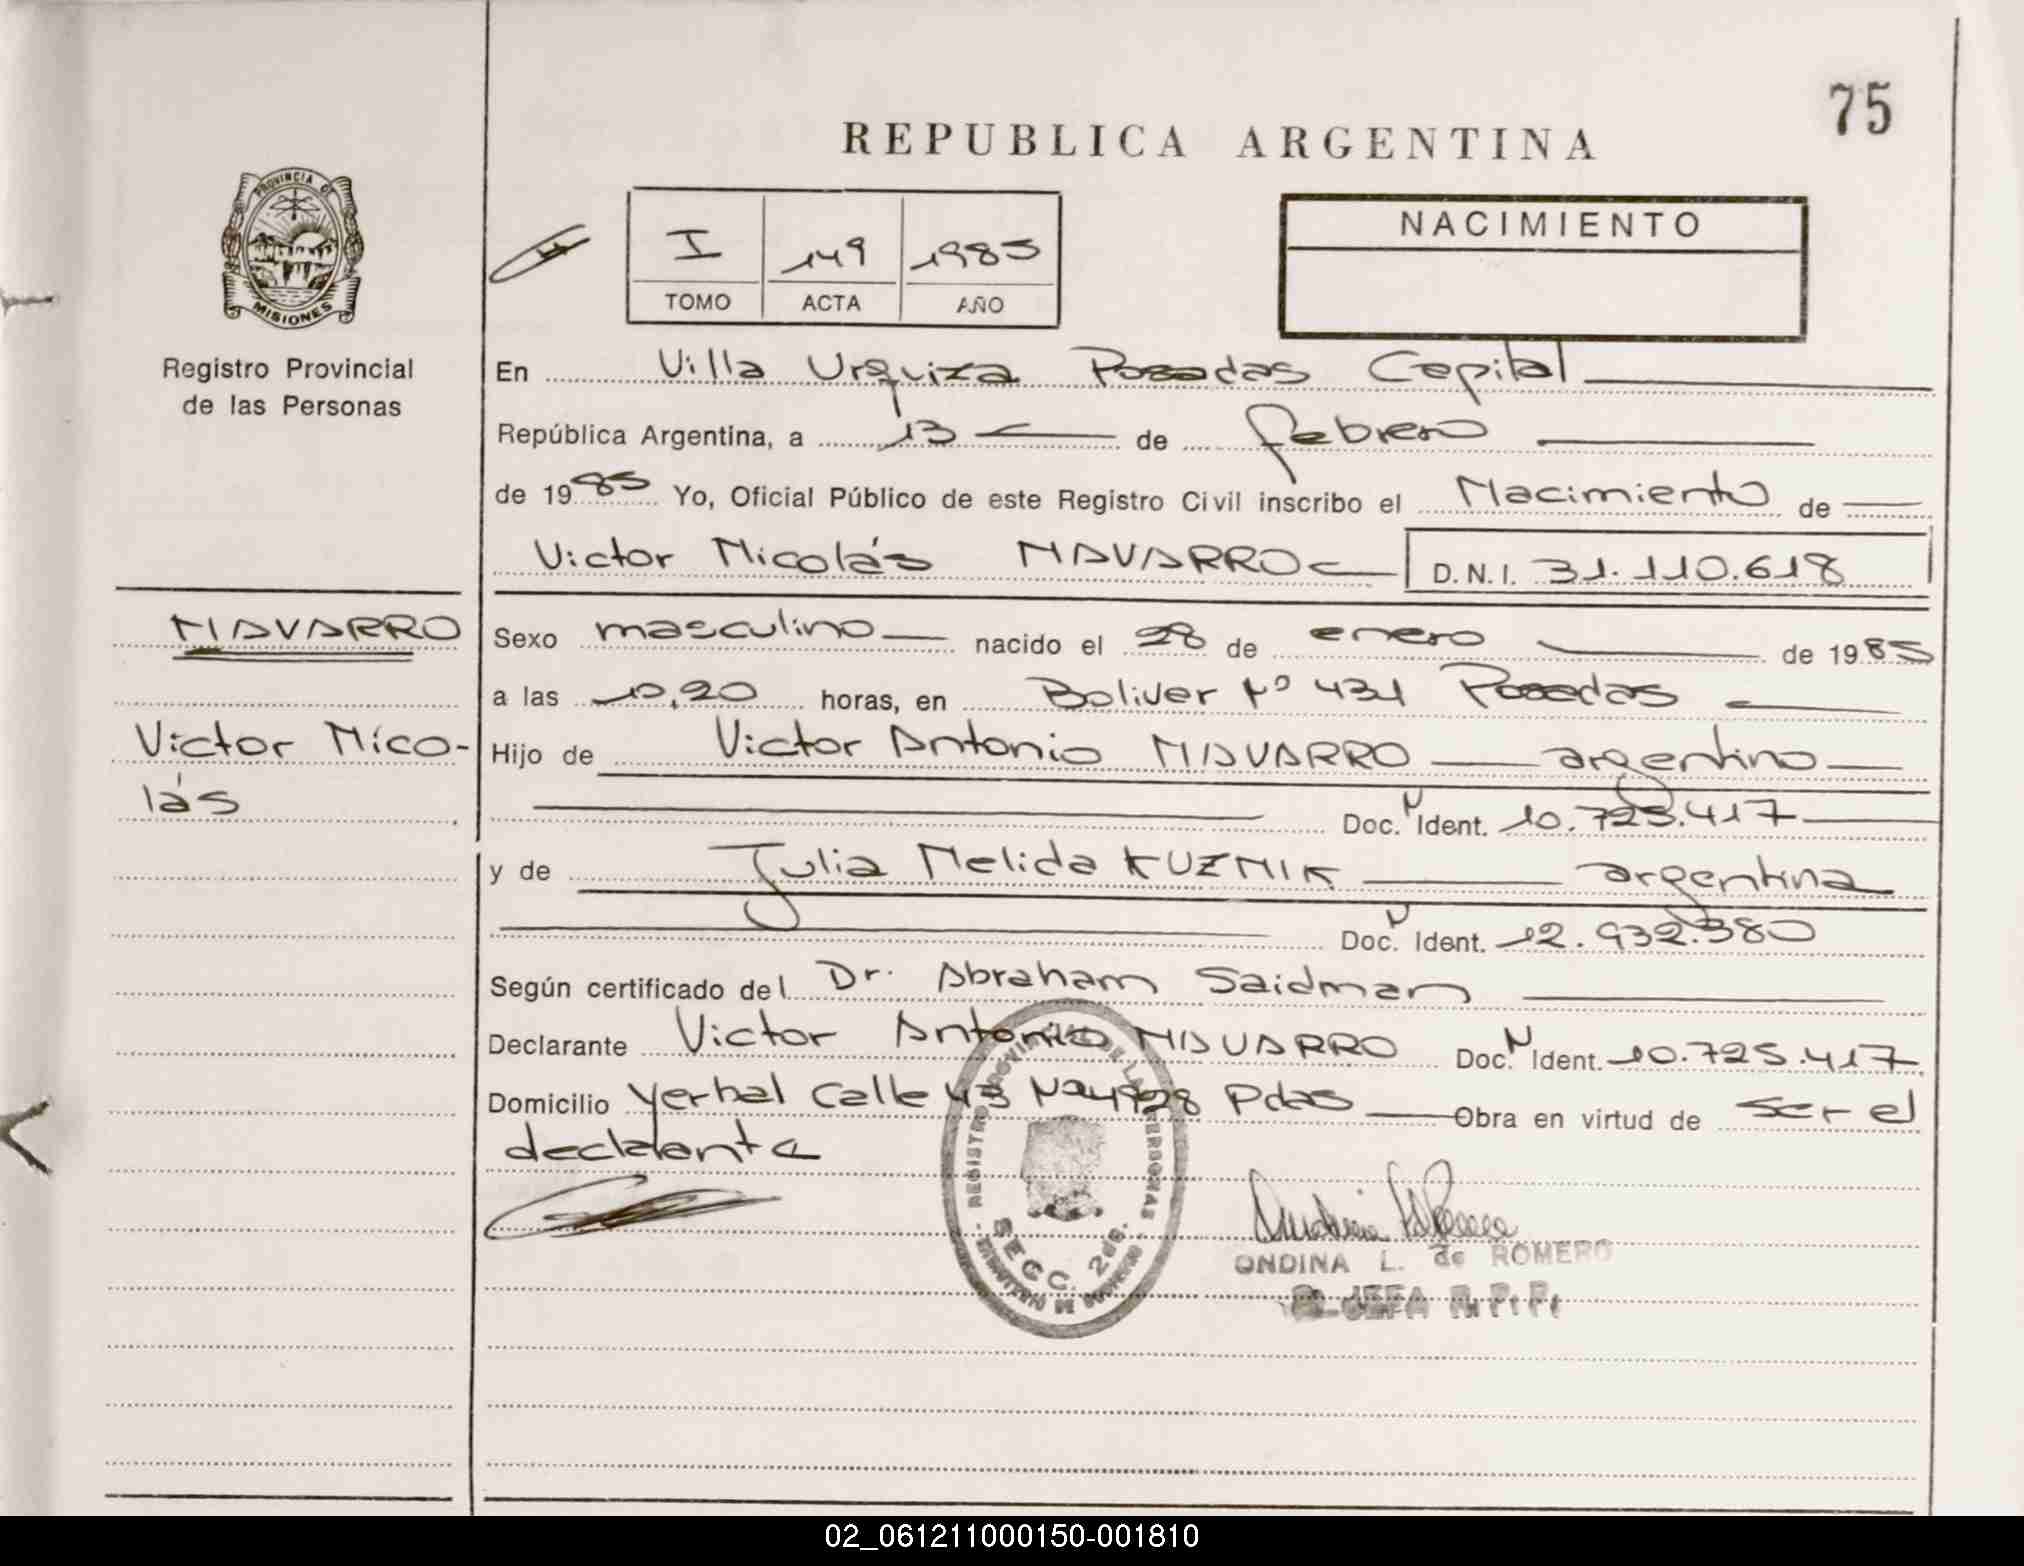 75
REPUBLICA ARGENTINA
PROVINCIA DE
MISIONES
I 149 1985
TOMO ACTA AÑO
NACIMIENTO
Registro Provincial
de las Personas
En Villa Urquiza Posadas Capital
República Argentina, a 13 de febrero
de 1985 Yo, Oficial Público de este Registro Civil inscribo el Nacimiento de
Victor Nicolás NAVARRO D.N.I. 31.110.618
NAVARRO
Victor Nico-
lás
Sexo masculino nacido el 28 de enero de 1985
a las 10,20 horas, en Bolivar Nº 431 Posadas
Hijo de Victor Antonio NAVARRO argentino
Doc. N Ident. 10.725.417
y de Julia Nelida KUZNIK argentina
Doc. N Ident. 12.932.380
Según certificado del Dr. Abraham Saidman
Declarante Victor Antonio NAVARRO Doc. N Ident. 10.725.417
Domicilio Yerbal Calle 43 Nº 4928 Pdas Obra en virtud de ser el
declarante
REGISTRO PROVINCIAL DE LAS PERSONAS
SECC. 2da.
MINISTERIO DE GOBIERNO
ONDINA L. de ROMERO
JEFA R. P. P.
02_061211000150-001810